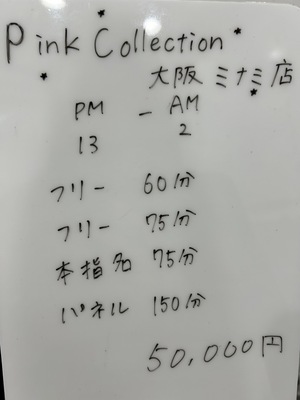 Pink Collection
大阪 ミナミ店
PM - AM
13 2
フリー 60分
フリー 75分
本指名 75分
パネル 150分
50,000円